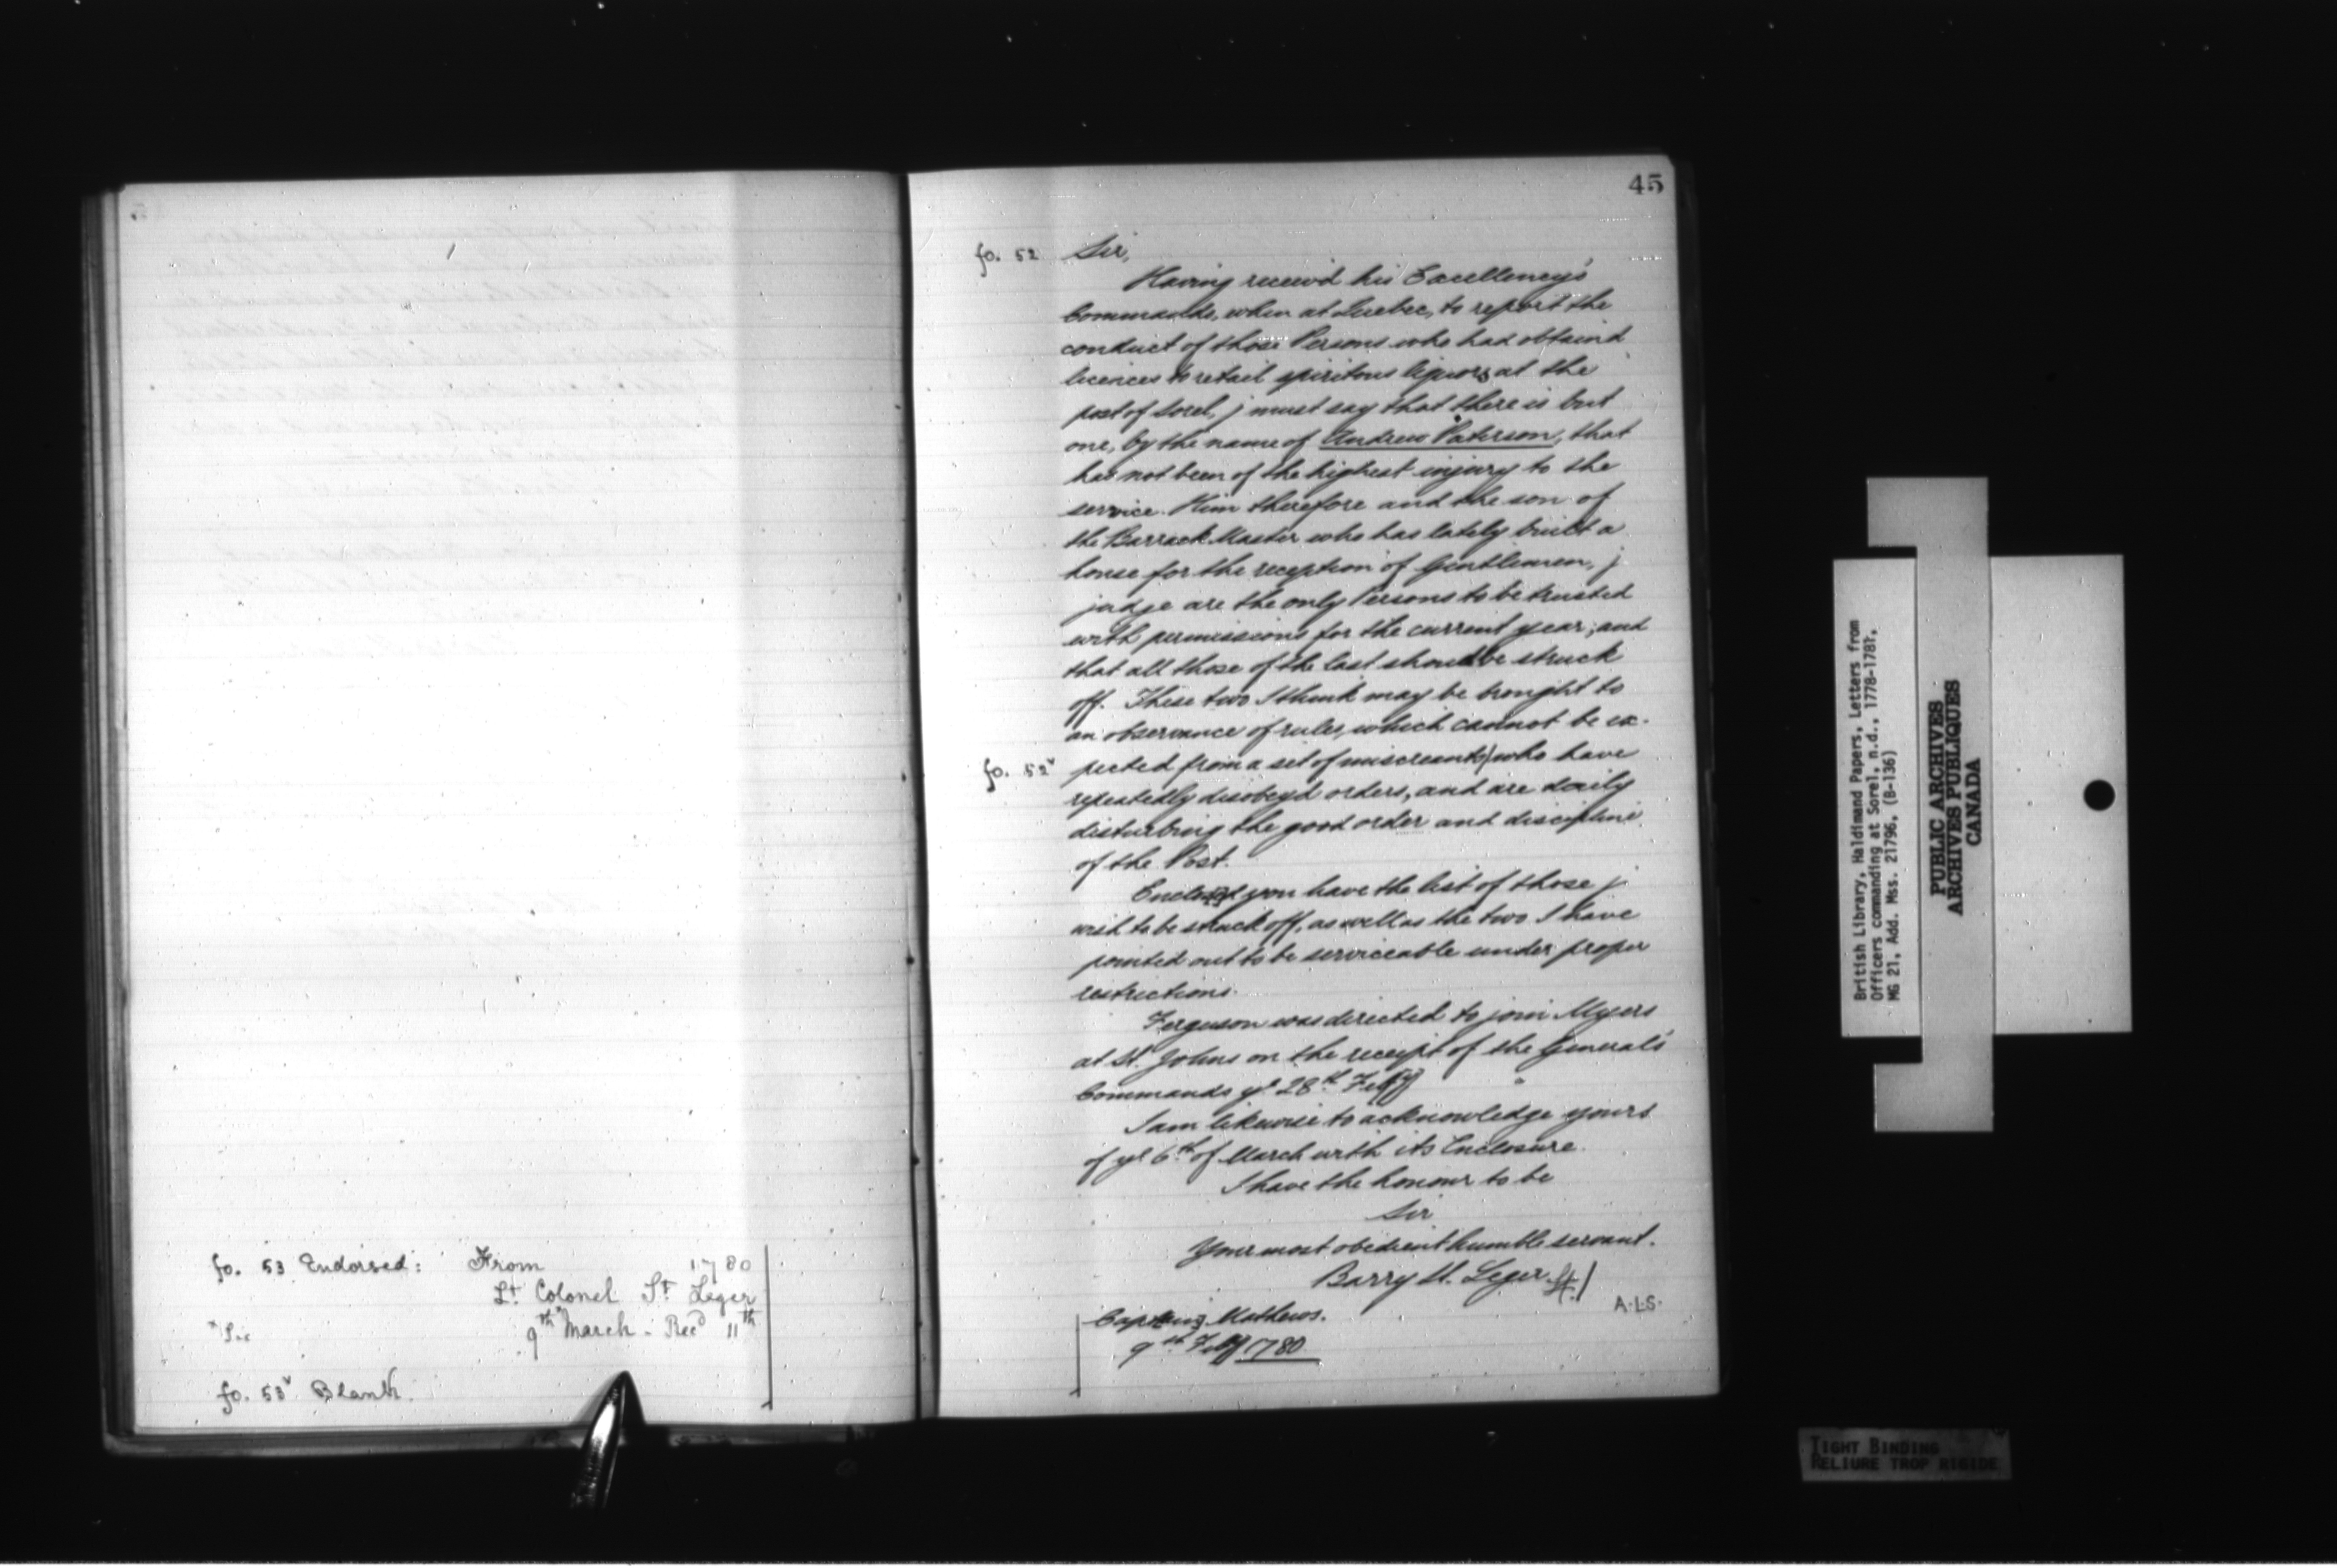 fo. 53 Endorsed: From 1780
Lt Colonel St Leger
*Sic 9th* March - Recd 11th
fo. 53v Blank.
45
fo. 52 Sir,
Having receiv'd his Excellency's
Commands, when at Quebec, to report the
conduct of those Persons who had obtaind
licences to retail spiritous liquors at the
post of Sorel, j must say that there is but
one, by the name of Andrew Paterson, that
has not been of the highest injury to the
service. Him therefore and the son of
the Barrack Master who has lately built a
house for the reception of Gentlemen, j
judge are the only Persons to be trusted
with permissions for the current year; and
that all those of the last should be struck
off. These two I think may be brought to
an observance of rules, which cannot be ex-
fo. 52v pected from a set of miscreants/ who have
repeatedly disobeyd orders, and are daily
disturbing the good order and discipline
of the Post.
Enclosed you have the list of those j
wish to be struck off, as well as the two I have
pointed out to be serviceable under proper
restrictions.
Ferguson was directed to join Myers
at St. Johns on the receipt of the General's
Commands ye 28th Febry
I am likewise to acknowledge yours
of ye 6th of March with its Enclosure.
I have the honour to be
Sir
Your most obedient humble servant.
Barry St. Leger
A.L.S.
Captaing Mathews.
9th Febry 1780
British Library, Haldimand Papers, Letters from
Officers commanding at Sorel, n.d., 1778-1781,
MG 21, Add. Mss. 21796, (B-136)
PUBLIC ARCHIVES
ARCHIVES PUBLIQUES
CANADA
TIGHT BINDING
RELIURE TROP RIGIDE